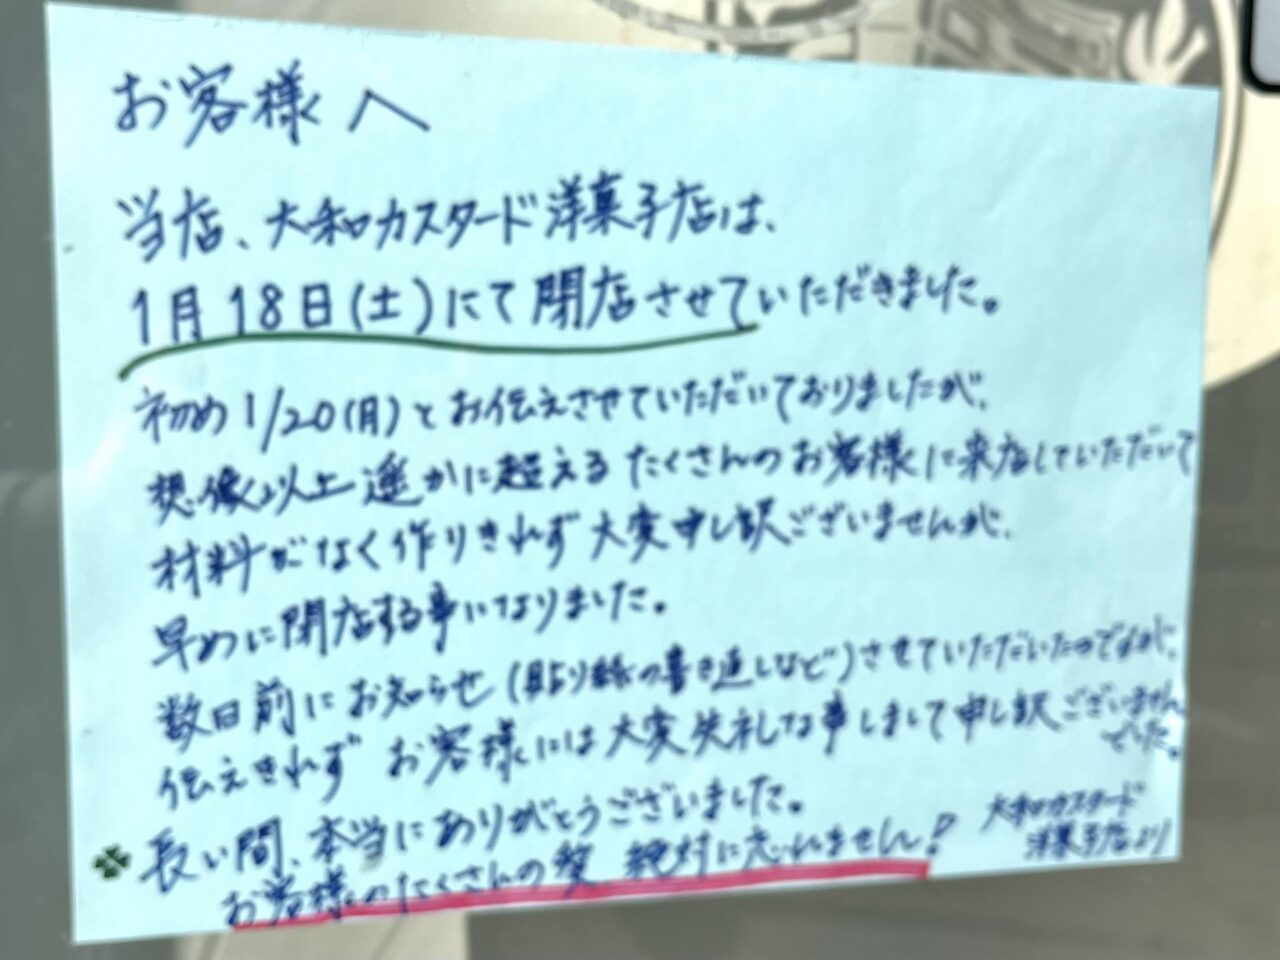 お客様へ
当店、大和カスタード洋菓子店は、
1月18日(土)にて閉店させていただきました。
初め1/20(月)とお伝えさせていただいておりましたが、
想像以上遥かに超えるたくさんのお客様に来店していただいて
材料がなく作りきれず大変申し訳ございませんが、
早めに閉店する事になりました。
数日前にお知らせ(貼り紙の書き直しなど)させていただいたのですが、
伝えきれずお客様には大変失礼な事しまして申し訳ございません
でした。
長い間、本当にありがとうございました。
お客様のたくさんの笑 絶対に忘れません!
大和カスタード
洋菓子店より